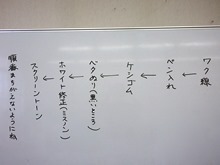 ワク線
↓
ペン入れ
↓
ケシゴム
↓
ベタぬり(黒いところ)
↓
ホワイト修正(ミスノン)
↓
スクリーントーン
順番まちがえないようにね